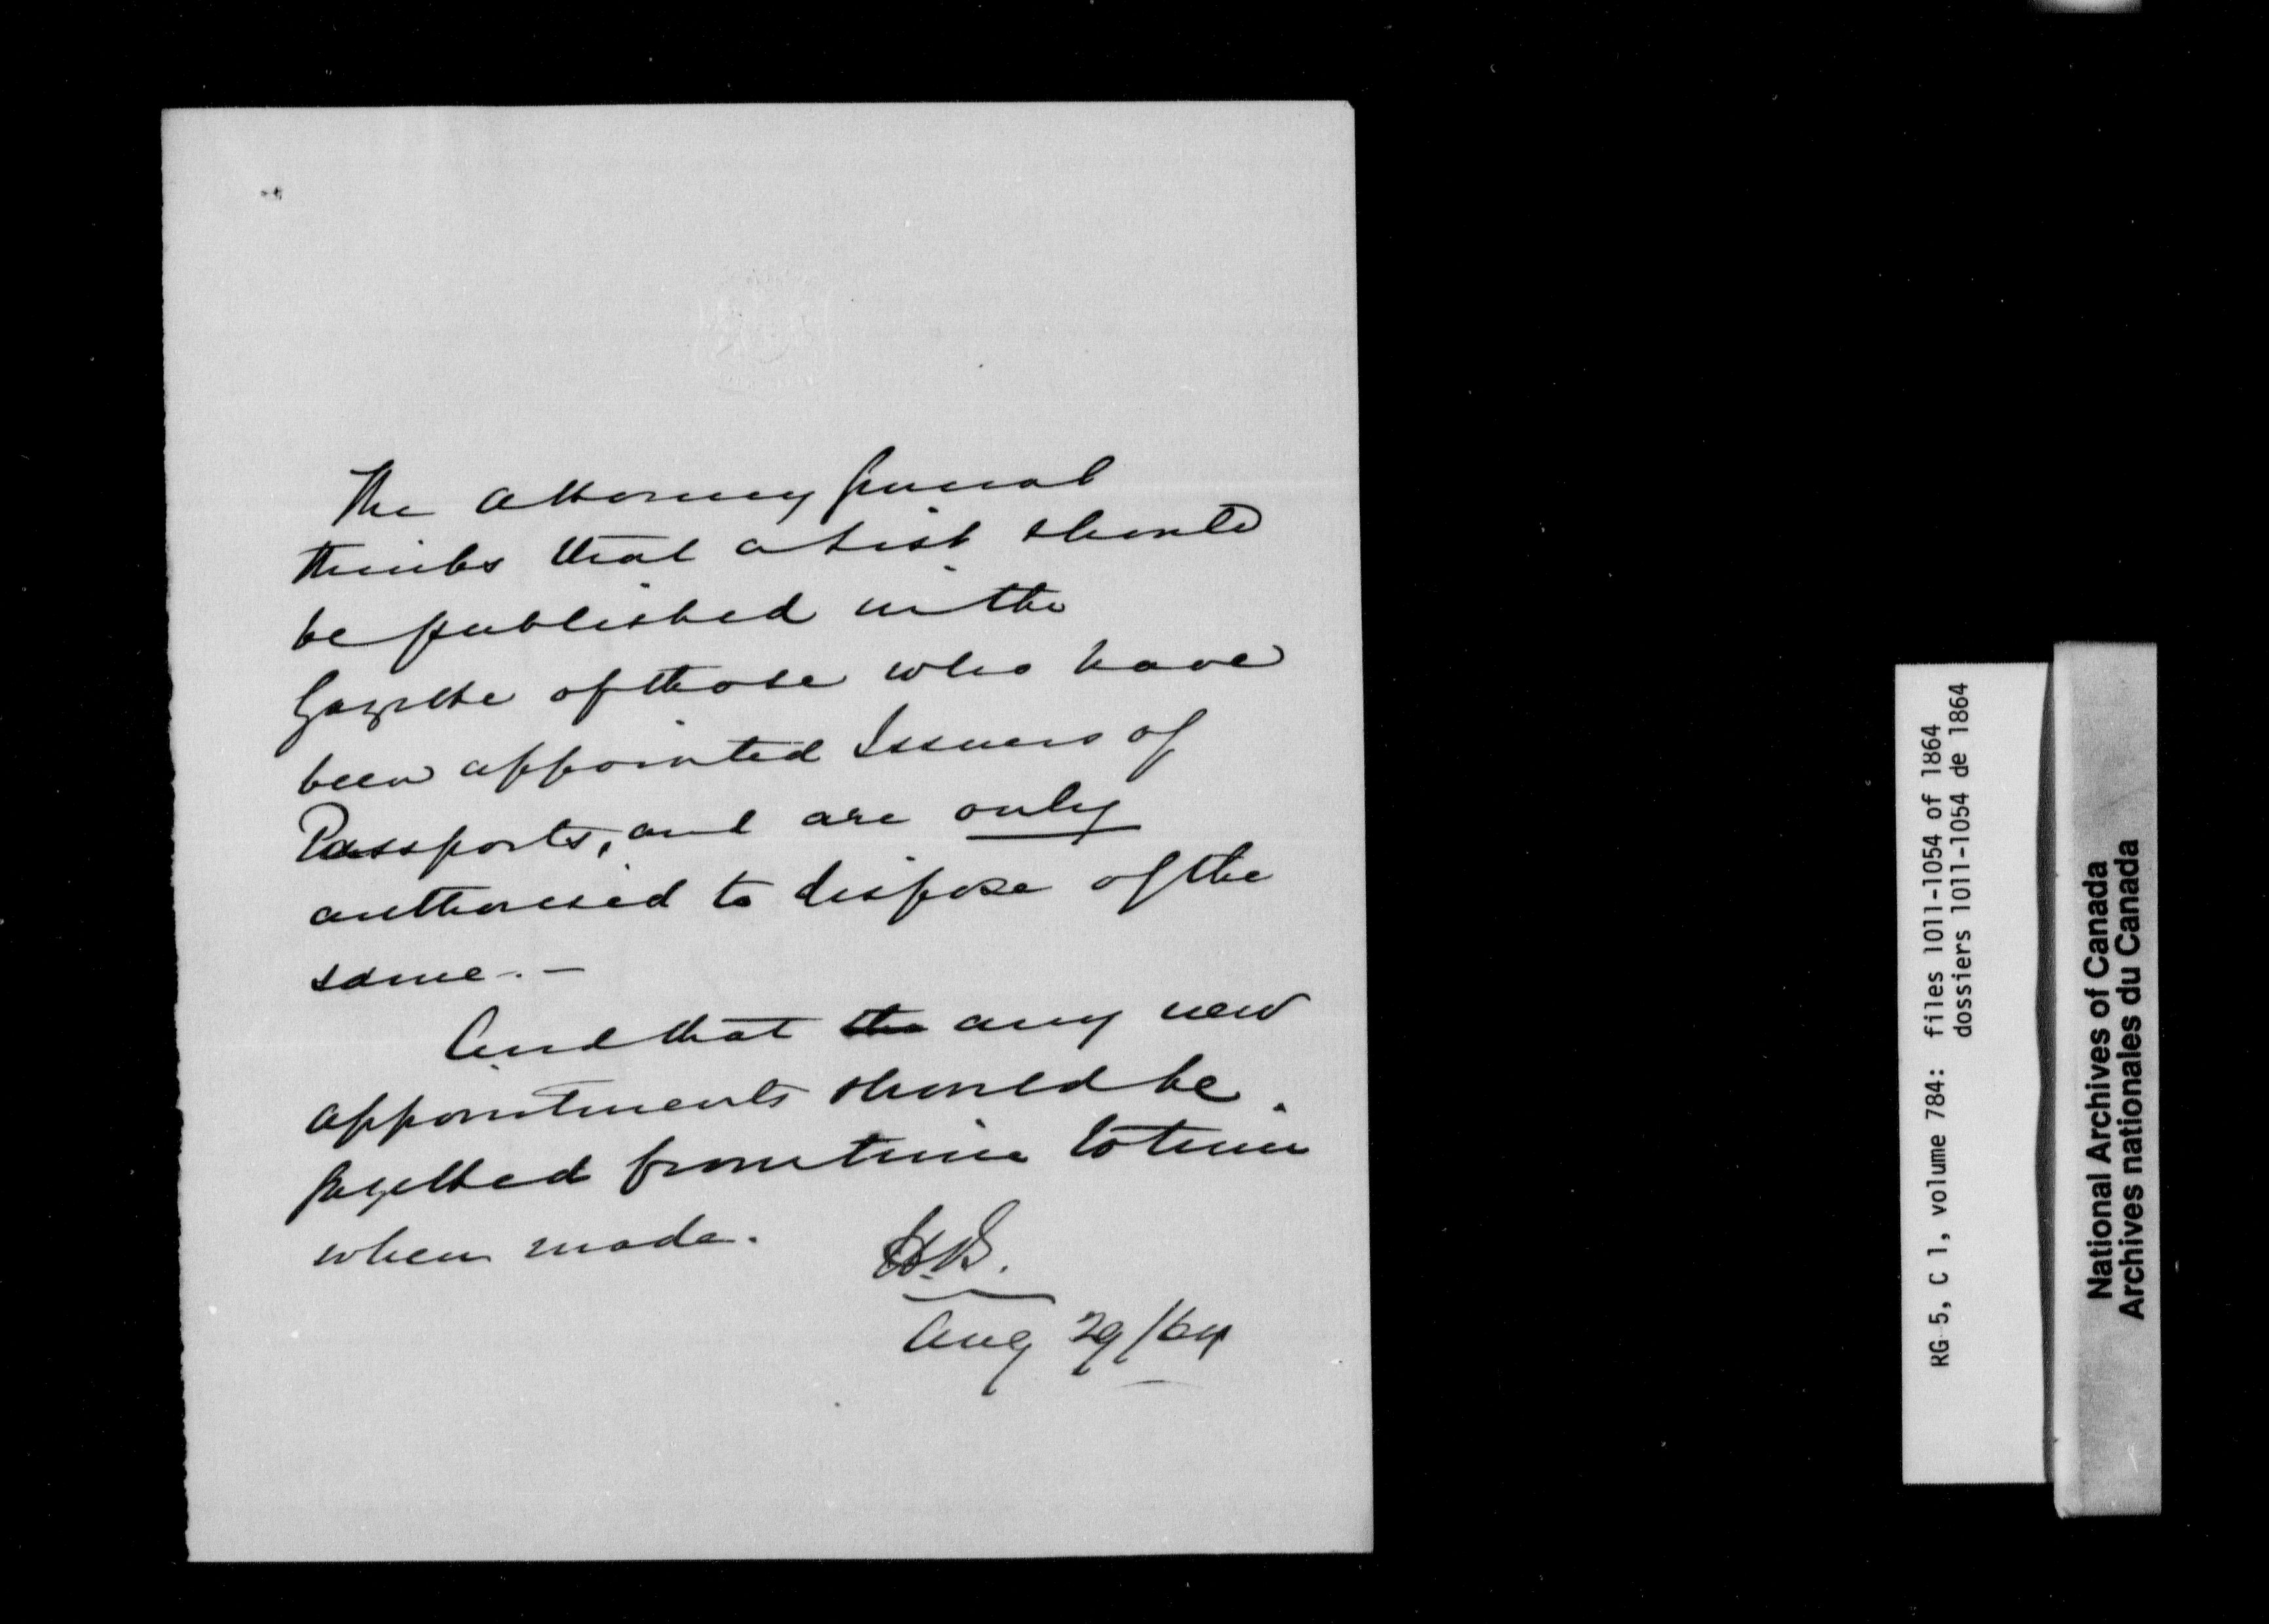 The Attorney General
thinks that a List should
be published in the
Gazette of those who have
been appointed Issuers of
Passports, and are only
authorised to dispose of the
same. -
And that the any new
appointments should be
gazetted from time to time
when made.
H.B.
Aug 29/64
RG 5, C 1, volume 784: files 1011-1054 of 1864
dossiers 1011-1054 de 1864
National Archives of Canada
Archives nationales du Canada